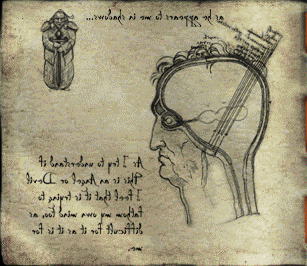 as he appears to me in shadows...
As I try to understand it
This is an Angel or Devil
I feel that it is trying to
fathom my own mind too, as
difficult for it as it is for
me.